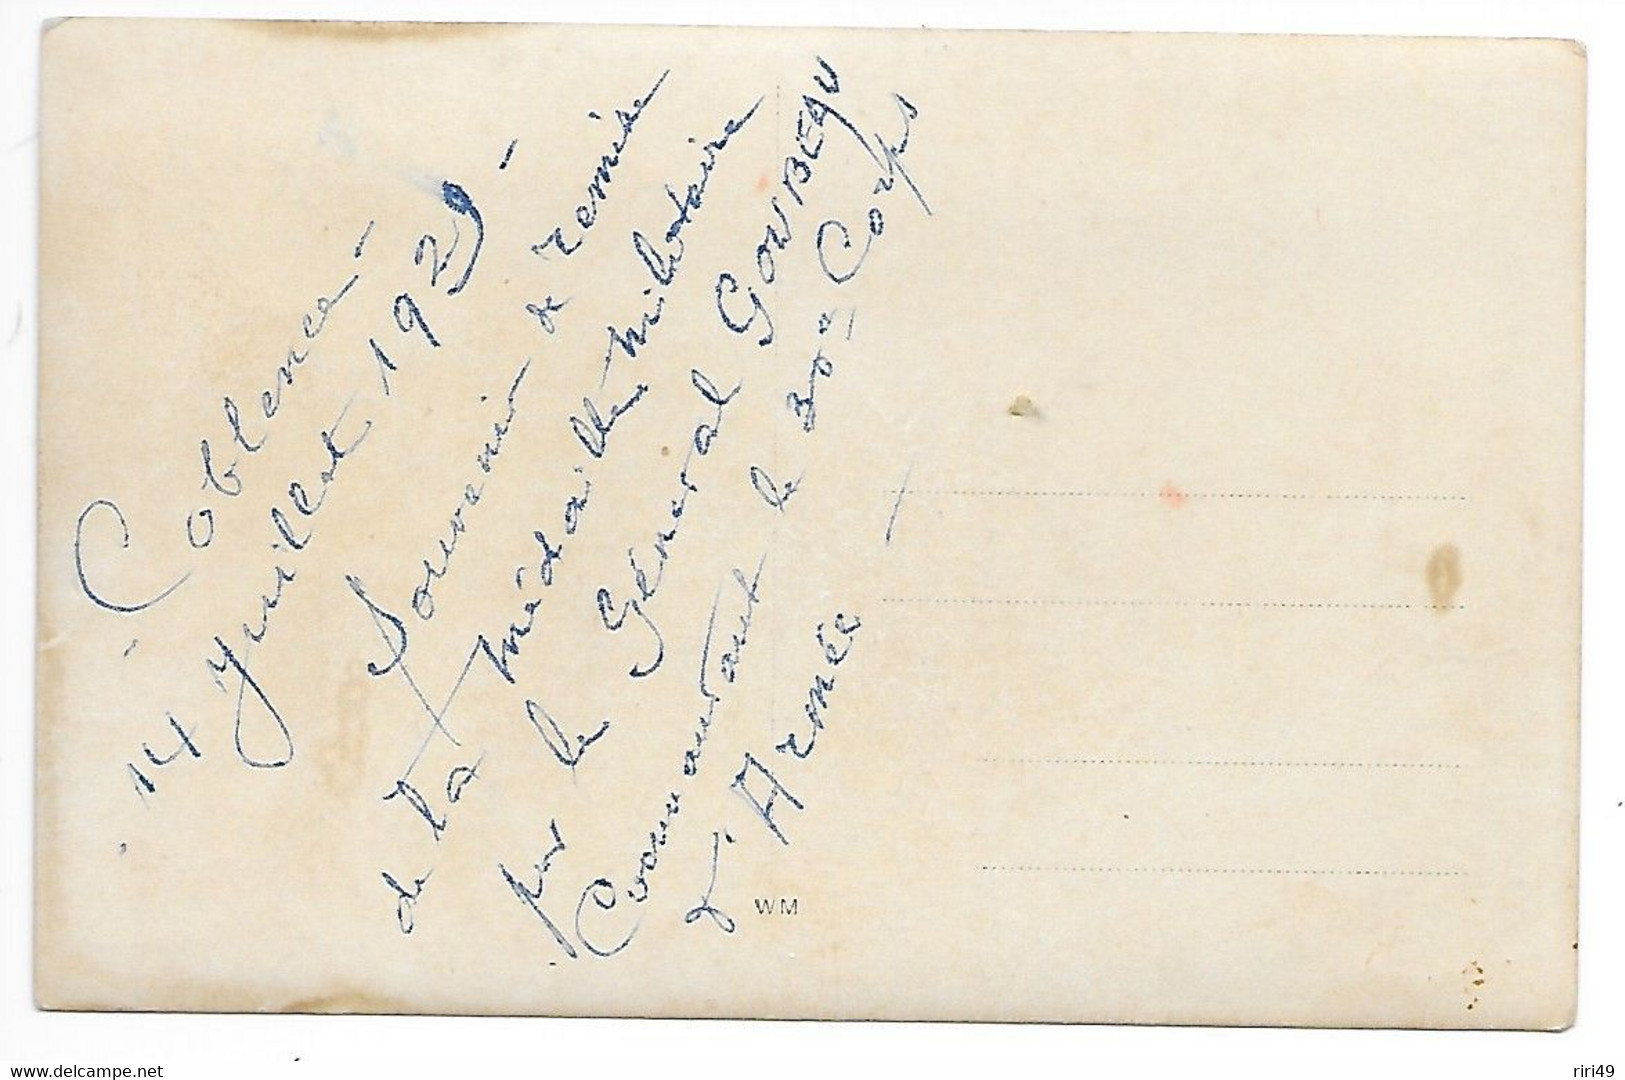 - Coblence -
- 14 Juillet 1929 -
Souvenir de remise
de la Médaille Militaire
par le Général GOURBEAU
Commandant le 30e Corps
d'Armée -
WM
www.delcampe.net
riri49